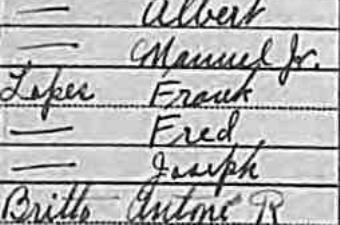 — Albert
— Manuel Jr.
Lopes Frank
— Fred
— Joseph
Britto Antone R